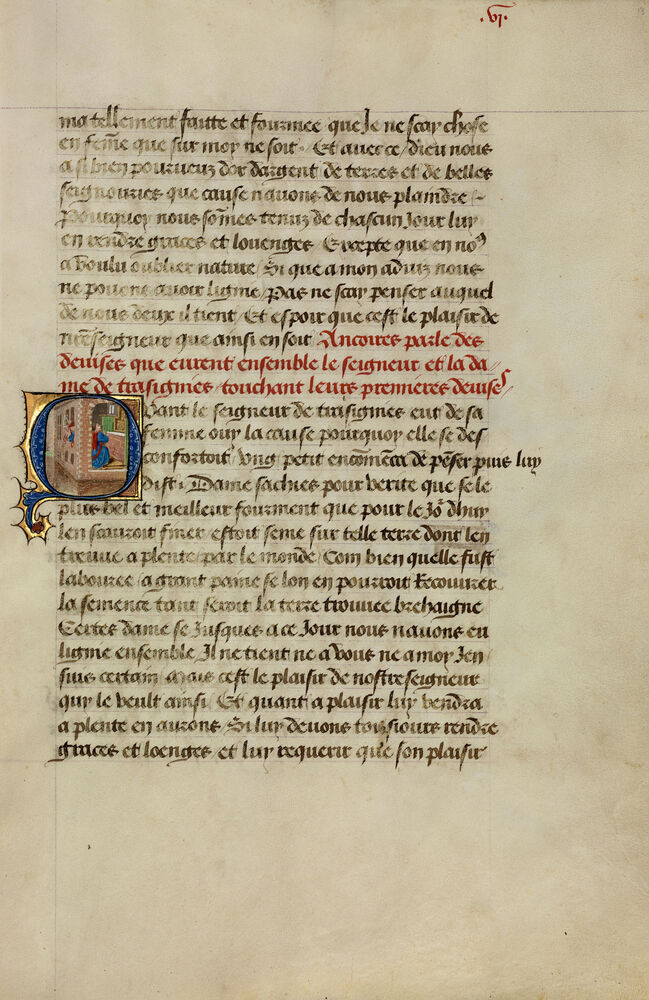 .vj.
ma tellement faitte et fourmee que Je ne scay chose
en fem̃e que sur moy ne soit. Et avec ce dieu nous
a si bien pourueuz dor dargent de terres et de belles
seignouries que cause nauons de nous plaindre
Pourquoy nous som̃es tenuz de chascun Jour luy
en rendre graces et louenges Excepte que en noꝰ
a voulu oublier nature Si que a mon aduiz nous
ne pouons auoir ligme / Pas ne scay penser auquel
de nous deux il tient Et espoir que cest le plaisir de
nr̃e seigneur que ainsi en soit Ancoires parle des
deuises que eurent ensemble le seigneur et la da
me de trasignies touchant leurs premieres deuises
Quant le seigneur de trasignies eut de sa
femme ouy la cause pourquoy elle se des
confortoit / vng petit encom̃enca de pẽser puis luy
dist. Dame sachies pour verite que se le
plus bel et meilleur fourment que pour le Jo᷑ dhuy
len scauroit finer estoit seme sur telle terre dont len
treuue a plente par le monde / Com bien quelle fust
labouree / a grant paine se lon en pourroit Recouurer
la semence tant seroit la terre trouuee brehaigne
Certes dame se Jusques a ce Jour nous nauons eu
ligme ensemble Il ne tient ne a vous ne a moy Jen
suis certain Mais cest le plaisir de nostre seigneur
quy le veult ainsi / Et quant a plaisir luy vendra
a plente en aurons Si luy deuons tousiours rendre
graces et loenges et luy requerir que son plaisir